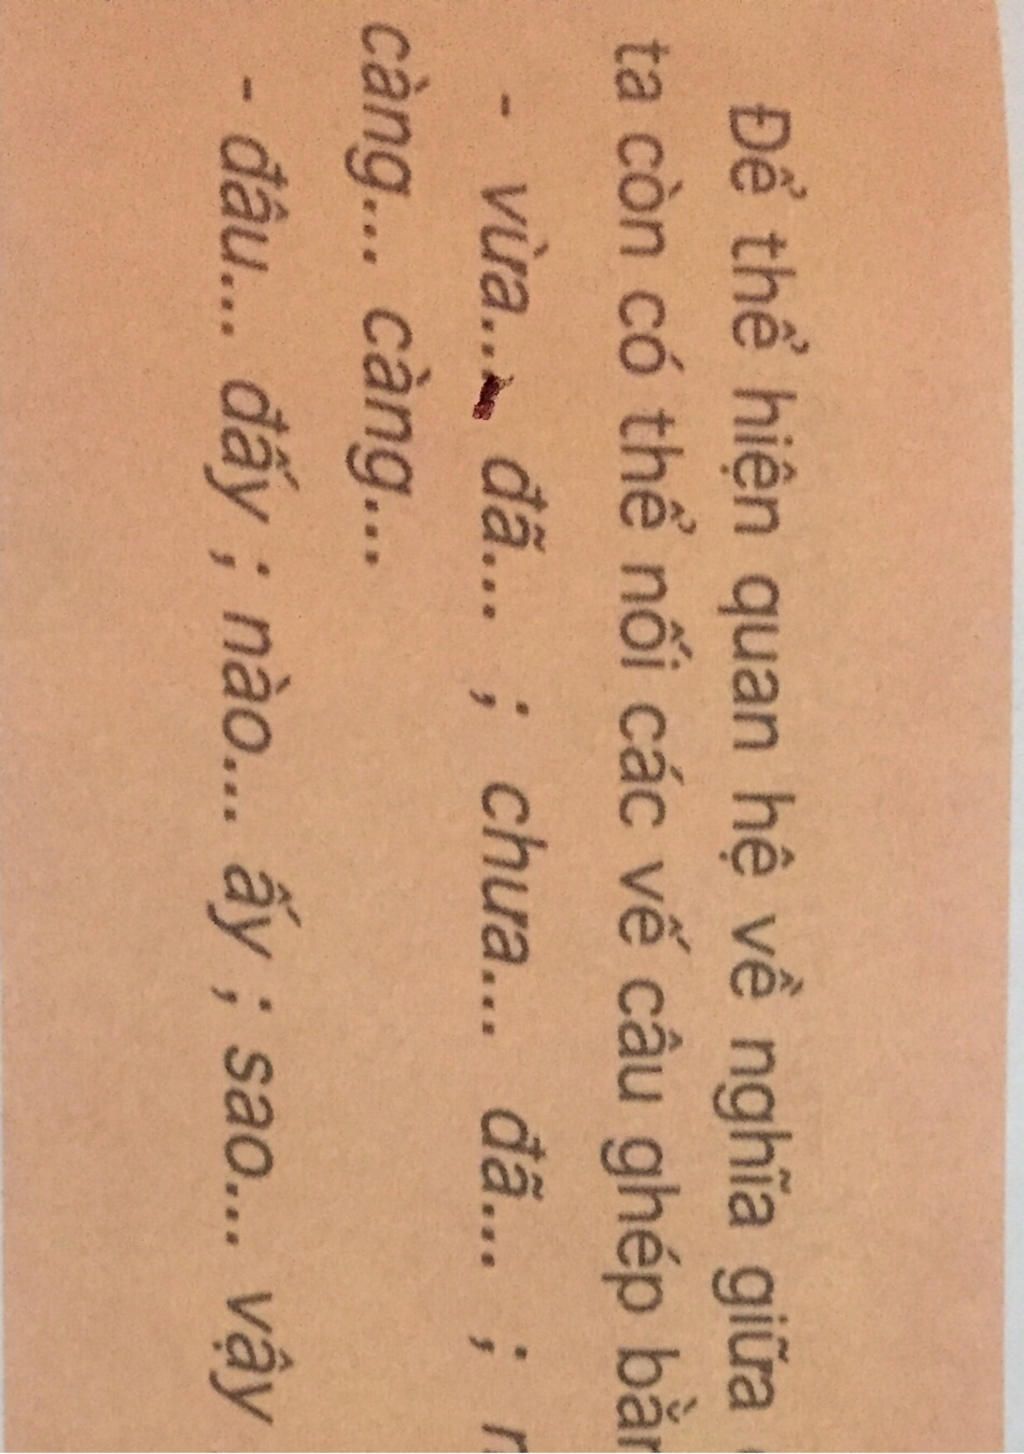 Để thể hiện quan hệ về nghĩa giữa
ta còn có thể nối các vế câu ghép
- vừa... đã... ; chưa... đã... ;
càng... càng...
- đâu... đấy ; nào... ấy ; sao... vậy